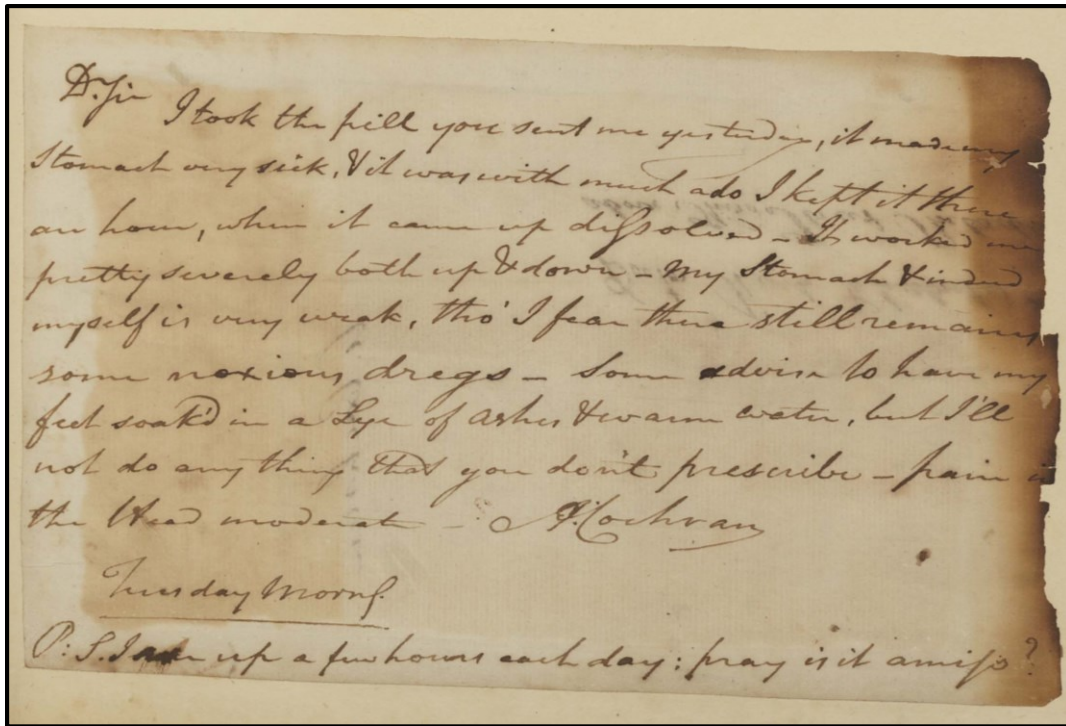 Dr. Sir I took the pill you sent me yesterday, it made my
Stomach very sick, & it was with much ado I kept it there
an hour, when it came up dissolved – It worked me
pretty severely both up & down – My Stomach & indeed
myself is very weak, tho' I fear there still remains
some noxious dregs – Some advise to have my
feet soak'd in a Lye of ashes & warm water, but I'll
not do any thing that you don't prescribe – pain in
the Head moderate – A. Cochran
Tuesday Morng.
P: S. I am up a few hours each day; pray is it amiss?